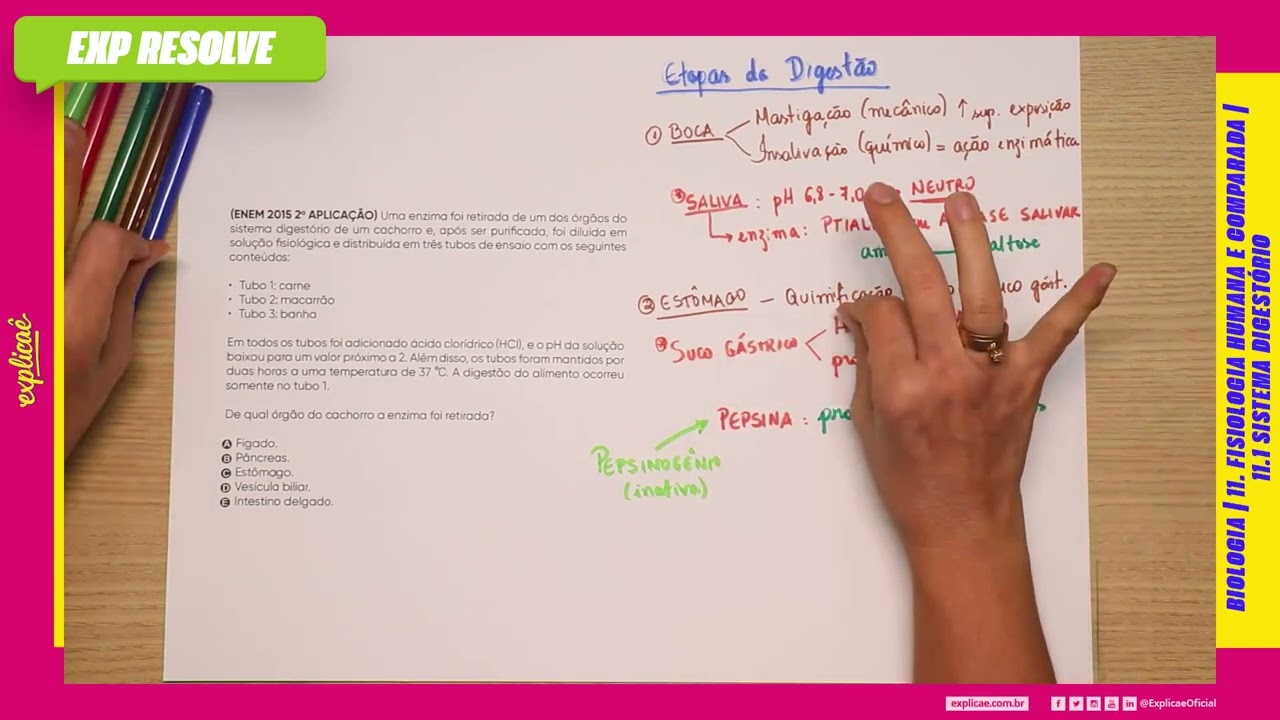 EXP RESOLVE
explicaê
(ENEM 2015 2ª APLICAÇÃO) Uma enzima foi retirada de um dos órgãos do
sistema digestório de um cachorro e, após ser purificada, foi diluída em
solução fisiológica e distribuída em três tubos de ensaio com os seguintes
conteúdos:
• Tubo 1: carne
• Tubo 2: macarrão
• Tubo 3: banha
Em todos os tubos foi adicionado ácido clorídrico (HCl), e o pH da solução
baixou para um valor próximo a 2. Além disso, os tubos foram mantidos por
duas horas a uma temperatura de 37 °C. A digestão do alimento ocorreu
somente no tubo 1.
De qual órgão do cachorro a enzima foi retirada?
A Fígado.
B Pâncreas.
C Estômago.
D Vesícula biliar.
E Intestino delgado.
Etapas da Digestão
① BOCA
Mastigação (mecânico) ↑ sup. exposição
Insalivação (químico) = ação enzimática
SALIVA : pH 6,8 - 7,0 NEUTRO
enzima: SALIVAR
② ESTÔMAGO - Quimificação
SUCO GÁSTRICO
PEPSINA :
PEPSINOGÊNIO
(inativa)
BIOLOGIA | 11. FISIOLOGIA HUMANA E COMPARADA |
11.1 SISTEMA DIGESTÓRIO
explicae.com.br
@ExplicaeOficial